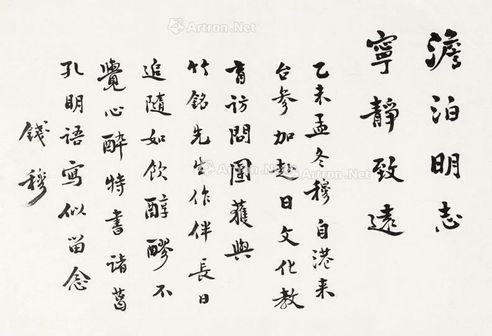 澹泊明志
寧靜致遠
乙未孟冬穆自港来
台参加赴日文化教
育访問團獲與
竹銘先生作伴長日
追隨如飲醇醪不
覺心醉特書诸葛
孔明語寫似留念
錢穆
Artron.Net
Artron.Net